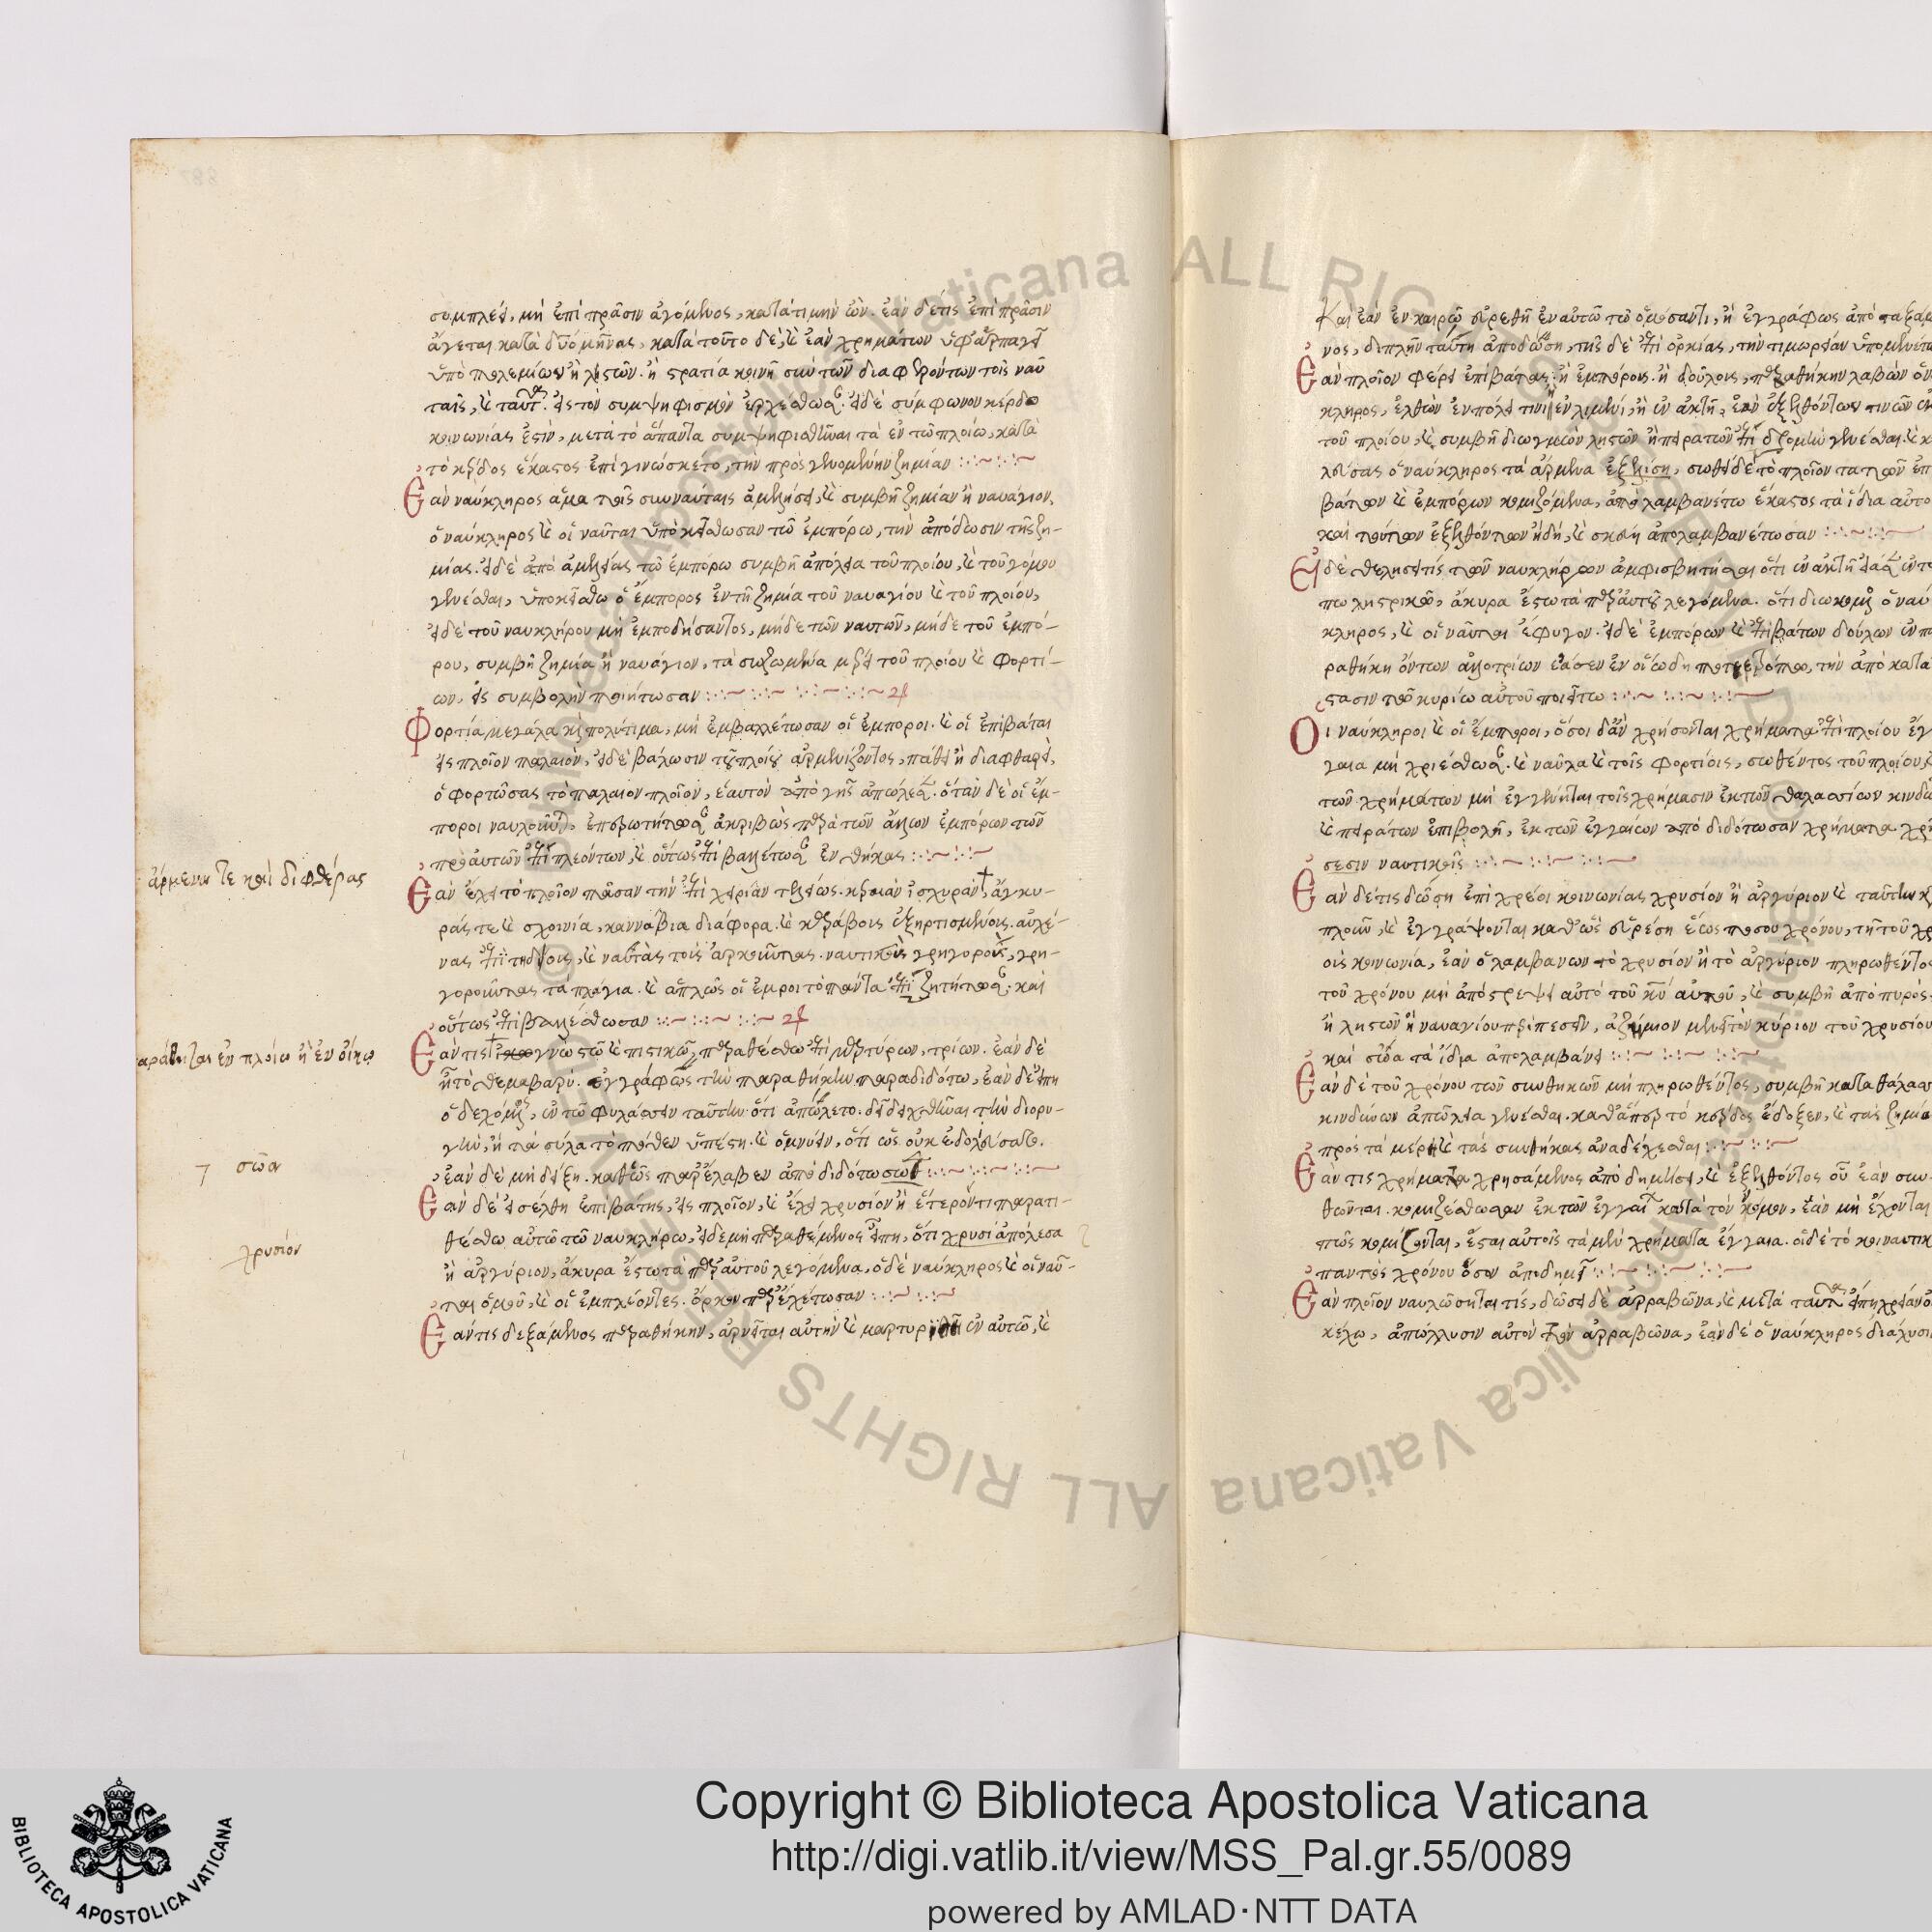 συμπλέει, μὴ ἐπὶ πρᾶσιν ἀγόμενος, κατὰ τιμὴν ὢν. ἐὰν δέ τις ἐπὶ πρᾶσιν
ἄγεται κατὰ δύο μῆνας, κατὰ τοῦτο δὲ, καὶ ἐὰν χρημάτων
ὑπὸ πολεμίων ἢ λῃστῶν. ἢ στρατιᾷ κοινῇ σὺν τῶν διαφερόντων τοῖς ναύ
ταις, καὶ ταῦτα εἰς τὸν συμψηφισμὸν ἐρχέσθωσαν. εἰ δὲ σύμφωνον κέρδο
κοινωνίας ἐστὶν, μετὰ τὸ ἅπαντα συμψηφισθῆναι τὰ ἐν τῷ πλοίῳ, κατὰ
τὸ κέρδος ἕκαστος ἐπιγινώσκετο, τὴν πρὸς γενομένην ζημίαν
Ἐὰν ναύκληρος ἅμα τοῖς συνναύταις ἀμελήσει, καὶ συμβῇ ζημίαν ἢ ναυάγιον,
ὁ ναύκληρος καὶ οἱ ναῦται ὑποκείσθωσαν τῷ ἐμπόρῳ, τὴν ἀπόδωσιν τῆς ζη-
μίας. εἰ δὲ ἀπὸ ἀμελείας τῷ ἐμπόρῳ συμβῇ ἀπόλεια τοῦ πλοίου, καὶ τοῦ γόμου
γενέσθαι, ὑποκείσθω ὁ ἔμπορος ἐν τῇ ζημίᾳ τοῦ ναυαγίου καὶ τοῦ πλοίου,
εἰ δὲ τοῦ ναυκλήρου μὴ ἐμποδήσαντος, μήδε τῶν ναυτῶν, μήδε τοῦ ἐμπό-
ρου, συμβῇ ζημία ἢ ναυάγιον, τὰ σωζωμένα μέρει τοῦ πλοίου καὶ φορτί-
ων, εἰς συμβολὴν ποιήτωσαν
Φορτία μεγάλα καὶ πολύτιμα, μὴ ἐμβαλλέτωσαν οἱ ἔμποροι. καὶ οἱ ἐπιβάται
εἰς πλοῖον παλαιὸν, εἰ δὲ βάλωσιν τοῦ πλοίου ἀρμενίζοντος, πάθει ἢ διαφθαρεῖ,
ὁ φορτώσας τὸ παλαιὸν πλοῖον, ἑαυτὸν ἀπὸ γῆς ἀπώλεσεν. ὅταν δὲ οἱ ἔμ-
ποροι ναυλοῦνται, ἐπερωτήτωσαν ἀκριβὼς παρὰ τῶν ἄλλων ἐμπόρων τῶν
πρὸ αὐτῶν ἐπιπλεόντων, καὶ οὕτως ἐπιβαλλέτωσαν ἐνθήκας
ἄρμενά τε καὶ διφθέρας
Ἐὰν ἔχει τὸ πλοῖον πᾶσαν τὴν ἐπιχειρίαν τελείως. κεραίαν ἰσχυρὰν, ἄγκυ-
ράς τε καὶ σχοινία, καννάβια διάφορα. καὶ καράβοις ἐξηρτισμένοις. αὐχέ-
νας ἐπιτηδίοις, καὶ ναύτας τοῖς ἀρκοῦντας. ναυτικοὺς γρηγοροὺς, γρη-
γοροῦντας τὰ πλάγια. καὶ ἁπλῶς οἱ ἔμποροι τὸ πάντα ἐπιζητήτωσαν. καὶ
οὕτως ἐπιβαλλέσθωσαν
παράθηται ἐν πλοίῳ ἢ ἐν οἴκῳ
Ἐάν τις γνωστῷ καὶ πιστικῷ, παραθέσθω ἐπὶ μαρτύρων, τρίων. ἐὰν δὲ
ἦ τὸ θέμα βαρύ. ἐγγράφως τὴν παραθήκην παραδιδότω, ἐὰν δὲ εἴπη
ὁ δεχόμενος, ἐν τῷ φυλάσσειν ταύτην. ὅτι ἀπώλετο. δεῖ δειχθῆναι τὴν διορυ-
γὴν, ἢ τὰ σύλα τὸ πόθεν ὑπέστη. καὶ ὀμνύειν, ὅτι ὡς οὐκ ἐδολεύσατο.
σῶαν
ἐὰν δὲ μὴ δείξη. καθὼς παρέλαβεν ἀποδιδότω
Ἐὰν δὲ εἰσέλθη ἐπιβάτης, εἰς πλοῖον, καὶ ἔχει χρυσίον ἢ ἕτερόν τι παρατι-
χρυσίον
θέσθω αὐτῷ τῷ ναυκλήρῳ, εἰ δὲ μὴ παραθέμενος εἴπη, ὅτι χρυσὶ ἀπόλεσα
ἢ ἀργύριον, ἄκυρα ἔστω τὰ παρ' αὐτοῦ λεγόμενα, ὁ δὲ ναύκληρος καὶ οἱ ναῦ-
ται ὁμοῦ, καὶ οἱ ἐμπλέοντες. ὅρκον παρεχέτωσαν
Ἐάν τις δεξάμενος παραθήκην, ἀρνεῖται αὐτὴν καὶ ἐν αὐτῷ, καὶ
Καὶ ἐὰν ἐν καιρῷ εὑρεθῆ ἐν αὐτῷ τῷ ὀμόσαντι, ἢ ἐγγράφως ἀπο
νος, διπλὴν ταύτη ἀποδώση, τῆς δὲ ἐπιορκίας, τὴν τιμωρείαν
Ἐὰν πλοῖον φέρει ἐπιβάτας, ἢ ἐμπόρους. ἢ δούλους, παραθήκην λαβὼν
κληρος, ἐλθὼν ἐν πόλει τινὶ ἢ ἐν λιμένι, ἢ ἐν ἀκτῇ, ἐὰν ἐξελθόντων τινῶν
τοῦ πλοίου, καὶ συμβῆ διωγμὸν λῃστῶν ἢ πειρατῶν γενέσθαι. καὶ
λεύσας ὁ ναύκληρος τὰ ἄρμενα, σωθεῖ δὲ τὸ πλοῖον τὰ τῶν ἐπ
βάτων καὶ ἐμπόρων κομιζόμενα, ἀπολαμβανέτω ἕκαστος τὰ ἴδια αὐτο
καὶ τούτων ἐξελθόντων ἤδη, καὶ σκεύη ἀπολαμβανέτωσαν
Εἰ δὲ θελήσει τὶς τῶν ναυκλήρων ἀμφισβητῆσαι ὅτι ἐν ἀκτῇ
πω λῃστρικῷ, ἄκυρα ἔστω τὰ παρ' αὐτοῦ λεγόμενα. ὅτι ὁ ναύ
κληρος, καὶ οἱ ναῦται ἔφυγον. εἰ δὲ ἐμπόρων καὶ ἐπιβάτων δούλων ἐν πα
ραθήκη ὄντων ἀλλοτρίων ἐάσεν ἐν οἵῳ δήποτε τόπῳ, τὴν ἀποκατά
στασιν τῷ κυρίῳ αὐτοῦ ποιείτω
Οἱ ναύκληροι καὶ οἱ ἔμποροι, ὅσοι δἂν χρήσονται χρήματα ἐπὶ πλοίου ἔγ
γαια μὴ χριέσθωσαν. καὶ ναῦλα καὶ τοῖς φορτίοις, σωθέντος τοῦ πλοίου,
τῶν χρημάτων μὴ ἐγγένηται τοῖς χρήμασιν ἐκ τῶν θαλασσίων κινδύ
καὶ πειράτων ἐπιβολὴ, ἐκ τῶν ἐγγαίων ἀποδιδότωσαν χρήματα χρή
σεσιν ναυτικοῖς
Ἐὰν δέ τις δώση ἐπὶ χρέοι κοινωνίας χρυσίον ἢ ἀργύριον καὶ ταύτην
πλοῦν, καὶ ἐγγράψονται καθὼς εὑρέση ἕως πόσου χρόνου, τῇ τοῦ
οις κοινωνία, ἐὰν ὁ λαμβάνων τὸ χρυσίον ἢ τὸ ἀργύριον πληρωθέντος
τοῦ χρόνου μὴ ἀποστρέψει αὐτὸ τοῦ κυρίου αὐτοῦ, καὶ συμβῆ ἀπὸ πυρὸς,
ἢ λῃστῶν ἢ ναυαγίου περιπεσεῖν, ἀζήμιον μένειν τὸν κύριον τοῦ χρυσίου
καὶ σῶα τὰ ἴδια ἀπολαμβάνει
Ἐὰν δὲ τοῦ χρόνου τῶν συνθηκῶν μὴ πληρωθέντος, συμβῆ κατὰ θάλασσ
κινδύνων ἀπώλεια γενέσθαι. καθάπερ τὸ κέρδος ἔδοξεν, καὶ τὰς ζημία
πρὸς τὰ μέρη καὶ τὰς συνθήκας ἀναδέχεσθαι
Ἐάν τις χρήματα χρησάμενος ἀποδημήσει, καὶ ἐξελθόντος οὗ ἐὰν συν
θῶνται. κομιζέσθωσαν ἐκ τῶν ἐγγαίων κατὰ τὸν νόμον, ἐὰν μὴ ἔχονται
πῶς κομίζονται, ἔσται αὐτοῖς τὰ μὲν χρήματα ἔγγαια. οἱ δὲ τόκοι ναυτικ
παντὸς χρόνου ὅσον ἀποδημεῖ
Ἐὰν πλοῖον ναυλώσηται τίς, δώσει δὲ ἀρραβῶνα, καὶ μετὰ ταῦτα εἴπη χρείαν ο
κέχω, ἀπόλλυσιν αὐτὸν τὸν ἀρραβῶνα, ἐὰν δὲ ὁ ναύκληρος
Copyright © Biblioteca Apostolica Vaticana
http://digi.vatlib.it/view/MSS_Pal.gr.55/0089
powered by AMLAD·NTT DATA
BIBLIOTECA APOSTOLICA VATICANA